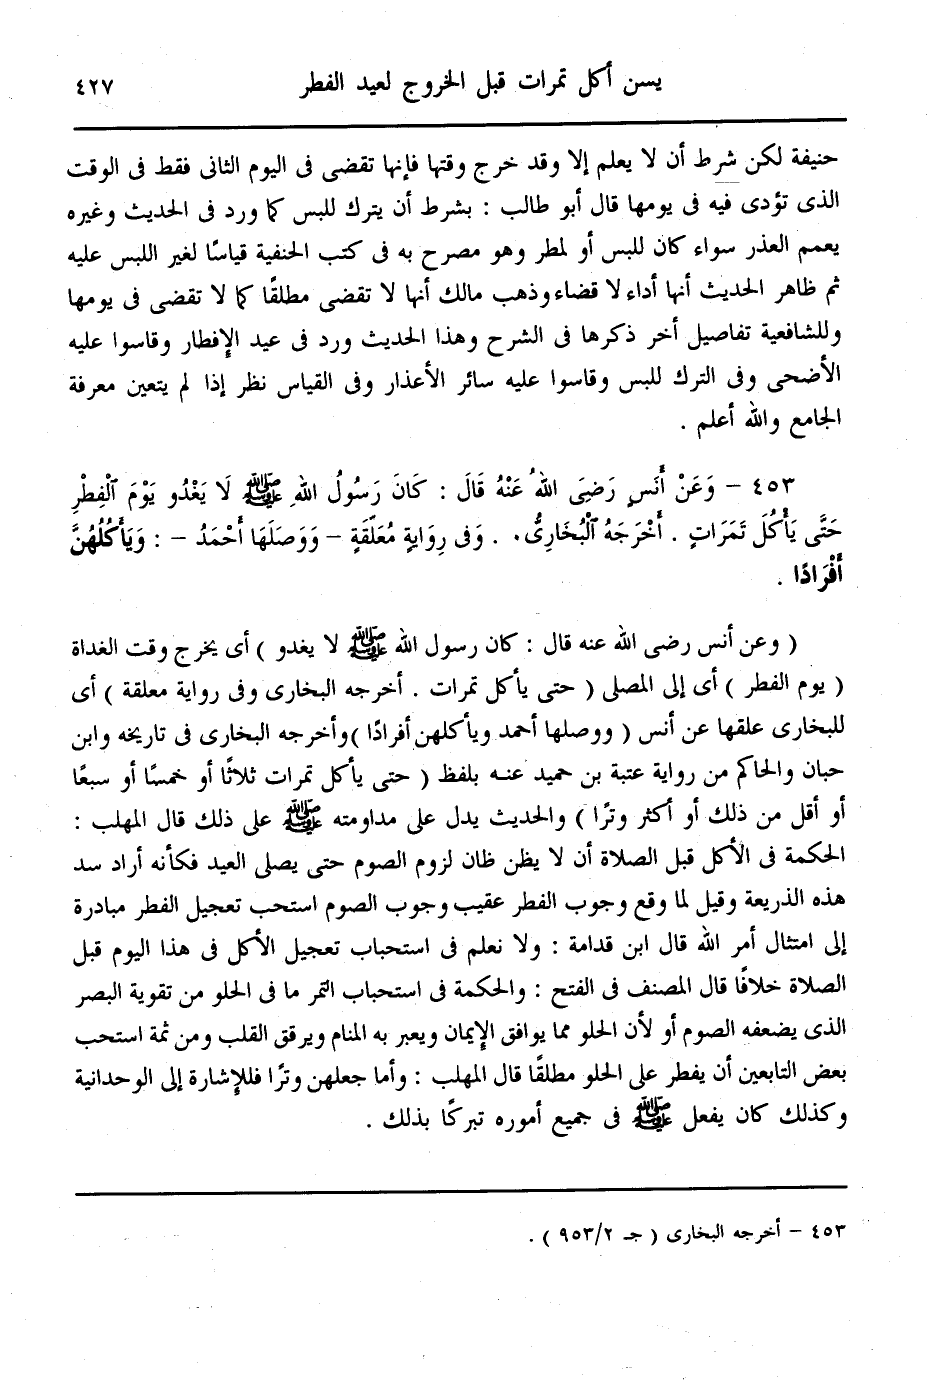 يسن أكل تمرات قبل الخروج لعيد الفطر ٤٢٧
حنيفة لكن شرط أن لا يعلم إلا وقد خرج وقتها فإنها تقضى فى اليوم الثانى فقط فى الوقت
الذى تؤدى فيه فى يومها قال أبو طالب : بشرط أن يترك للبس كما ورد فى الحديث وغيره
يعمم العذر سواء كان للبس أو لمطر وهو مصرح به فى كتب الحنفية قياسًا لغير اللبس عليه
ثم ظاهر الحديث أنها أداء لا قضاء وذهب مالك أنها لا تقضى مطلقًا كما لا تقضى فى يومها
وللشافعية تفاصيل أخر ذكرها فى الشرح وهذا الحديث ورد فى عيد الإفطار وقاسوا عليه
الأضحى وفى الترك للبس وقاسوا عليه سائر الأعذار وفى القياس نظر إذا لم يتعين معرفة
الجامع والله أعلم .
٤٥٣ – وَعَنْ أَنَسٍ رَضِىَ اللهُ عَنْهُ قَالَ : كَانَ رَسُولُ اللهِ ﷺ لَا يَغْدُو يَوْمَ ٱلْفِطْرِ
حَتَّى يَأْكُلَ تَمَرَاتٍ . أَخْرَجَهُ ٱلْبُخَارِىُّ . وَفى رِوَايَةٍ مُعَلَّقَةٍ – وَوَصَلَهَا أَحْمَدُ – : وَيَأْكُلُهُنَّ
أَفْرَادًا .
( وعن أنس رضى الله عنه قال : كان رسول الله ﷺ لا يغدو ) أى يخرج وقت الغداة
( يوم الفطر ) أى إلى المصلى ( حتى يأكل تمرات . أخرجه البخارى وفى رواية معلقة ) أى
للبخارى علقها عن أنس ( ووصلها أحمد ويأكلهن أفرادًا ) وأخرجه البخارى فى تاريخه وابن
حبان والحاكم من رواية عتبة بن حميد عنه بلفظ ( حتى يأكل تمرات ثلاثًا أو خمسًا أو سبعًا
أو أقل من ذلك أو أكثر وترًا ) والحديث يدل على مداومته ﷺ على ذلك قال المهلب :
الحكمة فى الأكل قبل الصلاة أن لا يظن ظان لزوم الصوم حتى يصلى العيد فكأنه أراد سد
هذه الذريعة وقيل لما وقع وجوب الفطر عقيب وجوب الصوم استحب تعجيل الفطر مبادرة
إلى امتثال أمر الله قال ابن قدامة : ولا نعلم فى استحباب تعجيل الأكل فى هذا اليوم قبل
الصلاة خلافًا قال المصنف فى الفتح : والحكمة فى استحباب التمر ما فى الحلو من تقوية البصر
الذى يضعفه الصوم أو لأن الحلو مما يوافق الإيمان ويعبر به المنام ويرقق القلب ومن ثمة استحب
بعض التابعين أن يفطر على الحلو مطلقًا قال المهلب : وأما جعلهن وترًا فللإشارة إلى الوحدانية
وكذلك كان يفعل ﷺ فى جميع أموره تبركًا بذلك .
٤٥٣ – أخرجه البخارى ( جـ ٩٥٣/٢ ) .